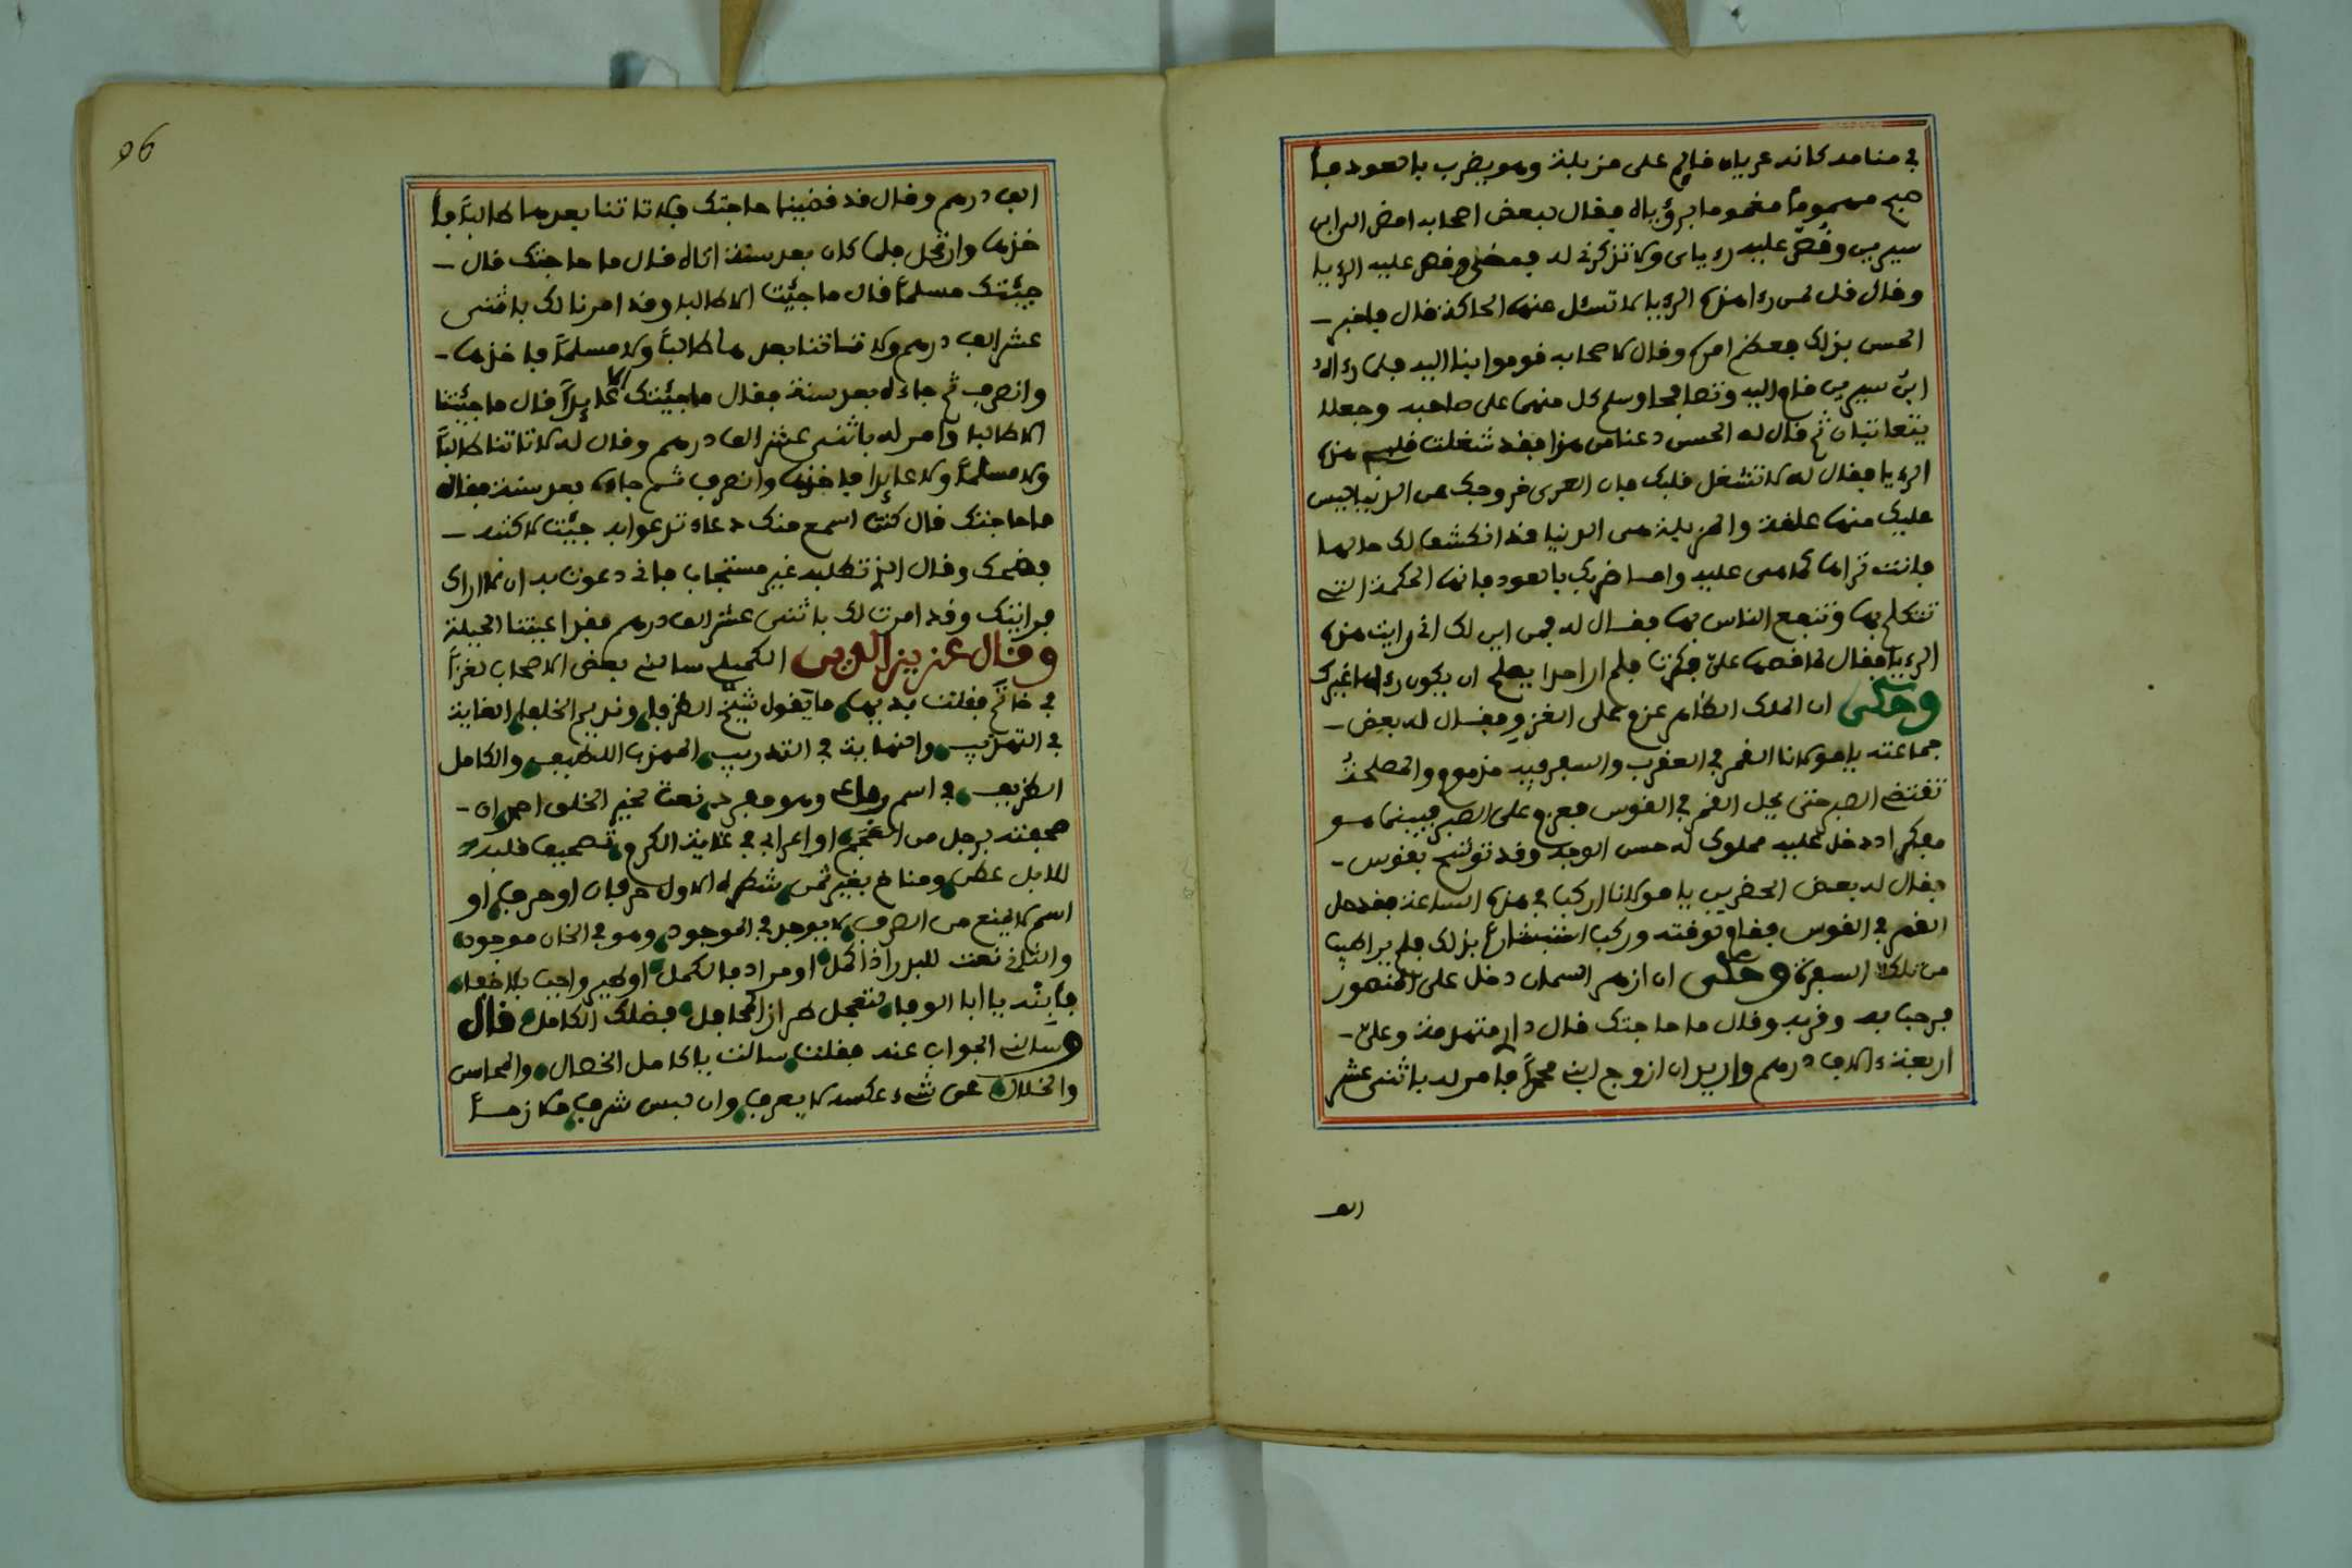 في منامه كانه عريان قايم على مزبلة وهو يضرب بالعود فأ
صبح مهموما مغموما برؤياه فقال لبعض اصحابه امض الى ابن
سيرين وقص عليه رءياى ولا تذكرنى له فمضى وقص عليه الرءيا
وقال قل لمن رءا هذه الرءيا لا تسئل عنها الحاكة قال فاخبر
الحسن بذلك فعظم امره وقال لاصحابه قوموا بنا اليه فلما رءاه
ابن سيرين قام اليه وتصافحا وسلم كل منهما على صاحبه وجعلا
يتعاتبان ثم قال له الحسن دعنا من هذا فقد شغلت قلبى هذه
الرءيا فقال له لا تشغل قلبك فان العرى خروجك من الدنيا ليس
عليك منها علقة والمزبلة هى الدنيا قد انكشف لك حالها
فانت تراها كما هى عليه واما ضربك بالعود فانها الحكمة التى
تتكلم بها وتنفع الناس بها فقال له فمن اين لك انى رايت هذه
الرءيا فقال لما قصها على فكرت فلم ار احدا يصلح ان يكون رءاها غيرك
وحكى ان الملك الظاهر عزم على الغزو فقال له بعض
جماعته يا مولانا القمر في العقرب والسفر فيه مذموم والمصلحة
تقتضى الصبر حتى يحل القمر في القوس فعزم على الصبر فبينما هو
مفكر اذ دخل عليه مملوك له حسن الوجه وقد توشح بقوس
فقال له بعض الحضرين يا مولانا اركب في هذه الساعة فقد حل
القمر في القوس فقام لوقته وركب استبشارا بذلك فلم ير اطيب
من تلك السفرة وحكى ان ازهر السمان دخل على المنصور
فرحب به وقربه وقال ما حاجتك قال دارى متهدمة وعلى
اربعة ءالاف درهم واريد ان ازوج ابنى محمدا فامر له باثنى عشر
الف
96
الف درهم وقال قد قضينا حاجتك فلا تاتنا بعدها طالبا فأ
خذها وارتحل فلما كان بعد سنة اتاه قال ما حاجتك قال
جئتك مسلما قال ما جئت الا طالبا وقد امرنا لك باثنى
عشر الف درهم ولا تاتنا بعدها طالبا ولا مسلما فاخذها
وانصرف ثم جاءه بعد سنة فقال ما جئتك الا عايدا قال ما جئتنا
الا طالبا وامر له باثنى عشر الف درهم وقال له لا تاتنا طالبا
ولا مسلما ولا عايدا فاخذها وانصرف ثم جاءه بعد سنة فقال
ما حاجتك قال كنت اسمع منك دعاء تدعوا به جئت لاكتبه
فضحك وقال الذى تطلبه غير مستجاب فانى دعوت به ان لا اراك
فرايتك وقد امرت لك باثنى عشر الف درهم فقد اعيتنا الحيلة
وقال عزيز الدين الكميلى سالنى بعض الاصحاب لغزا
في خاتم فقلت بديها ما يقول شيخ الظرفا ونديم الخلفا الغاية
في التهذيب والنهاية في التدريب المهذب اللطيف والكامل
الظريف في اسم رباعى وهو مفرد نعت لخير الخلق احمد ان
صحفته برجل من العجم او اعرابى في غاية الكرم وتصحيف قلبه
للابل عطن ومناخ بغير ثمن شطره الاول حرفان او حرف او
اسم لا يمنع من الصرف لا يوجد في الموجود وهو في الخان موجود
والثانى نعت للبدر اذا كمل او مرادف الكمل او طير واجب بلا خفاء
فابنه يا ابا الوفا لتفجل طراز المحافل بفضلك الكامل قال
وسالنى الجواب عنه فقلت سالت يا كامل الخصال والمحاسن
والخلال عن شىء عكسه لا يعرف وان لبس شرف ملازما